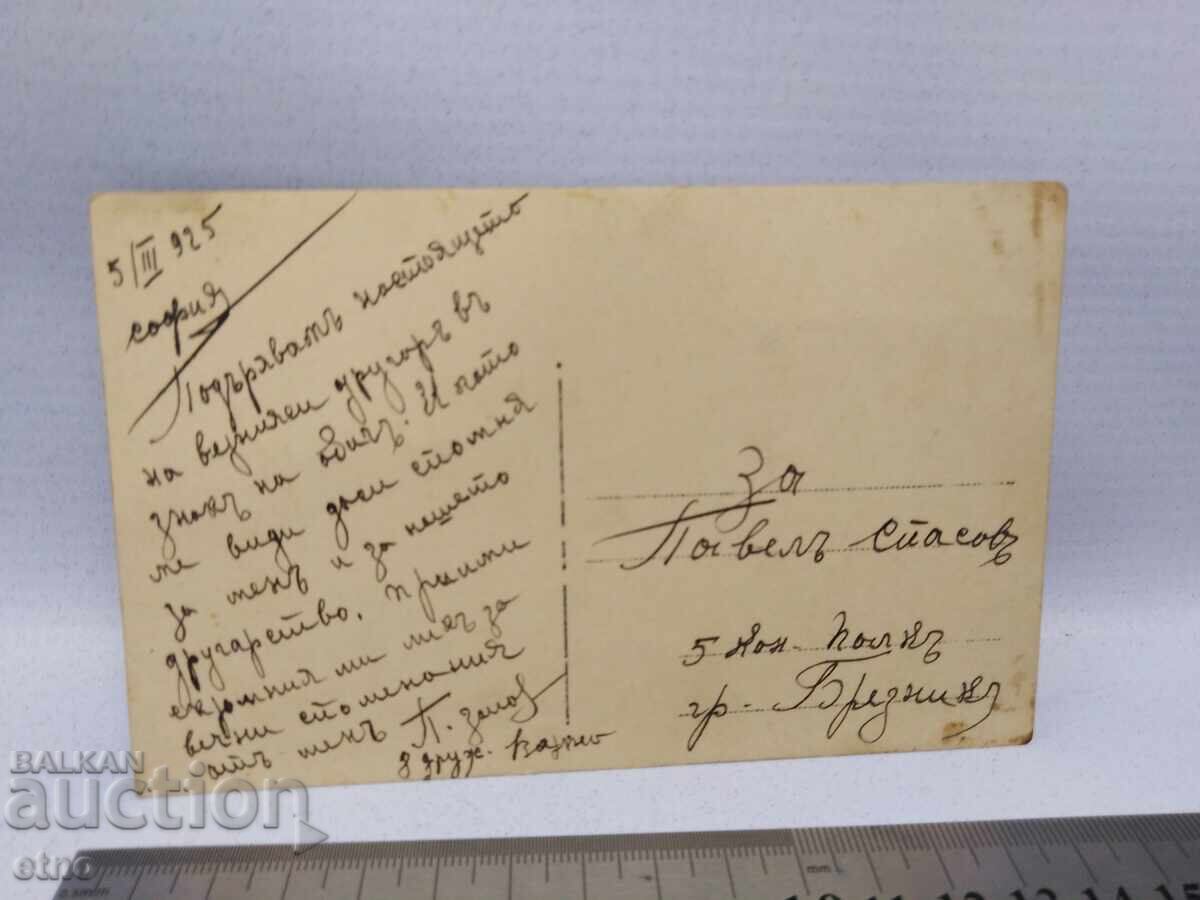 5/III 925
София
Подърявамъ настоящето
на другаръ въ
знакъ на обичъ. И като
ме види спомня
за менъ и за нашето
другарство. Приими
скромния ми за
вечни споменания
отъ менъ П.
8 друж.
За
Павелъ Спасовъ
5 Кон. Полкъ
гр. Брезникъ
BALKAN
auction
etno
0.5mm
mm
10 11 12 13 14 15